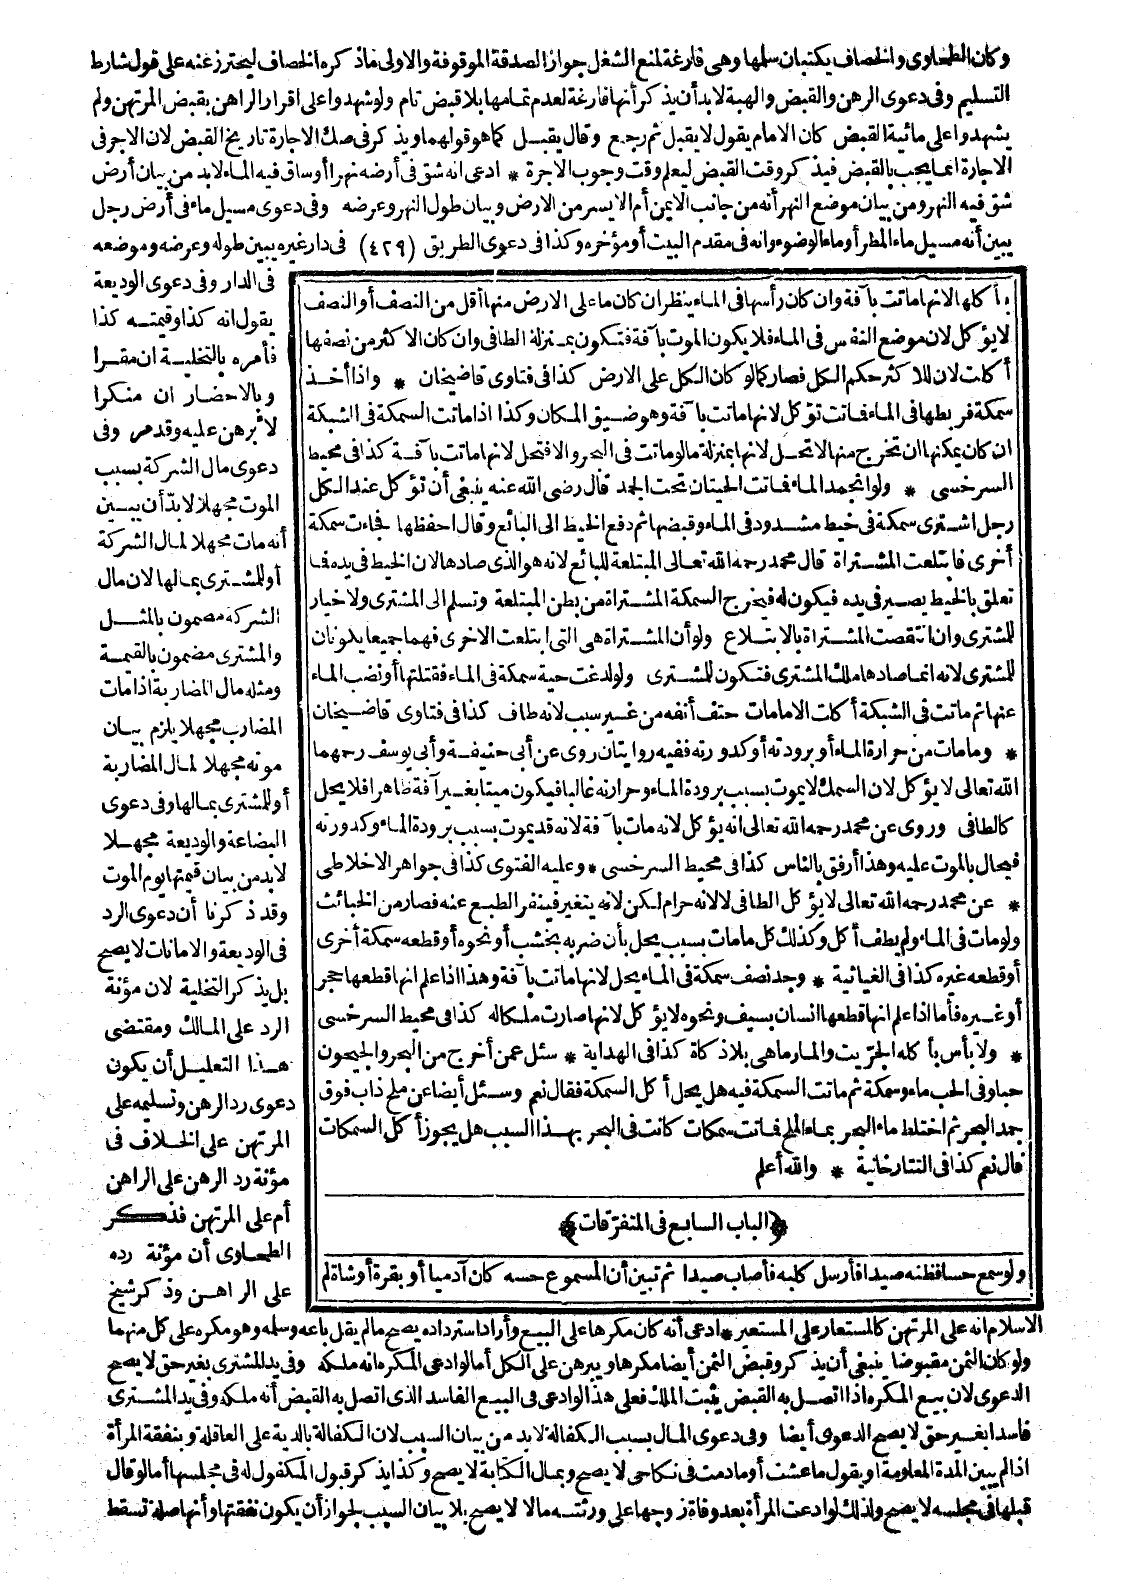 وكان الطحاوى والخصاف يكتبان سلمها وهى فارغة لمنع الشغل جواز الصدقة الموقوفة والاولى ماذكره الخصاف ليحترز عنه على قول شارط
التسليم وفى دعوى الرهن والقبض والهبة لابد أن يذكر أنها فارغة لعدم تمامها بلا قبض تام ولو شهدوا على اقرار الراهن بقبض المرتهن ولم
يشهدوا على مائية القبض كان الامام يقول لا يقبل ثم رجع وقال يقبل كما هو قولهما ويذكر فى صك الاجارة تاريخ القبض لان الاجر فى
الاجارة انما يجب بالقبض فيذكر وقت القبض ليعلم وقت وجوب الاجرة * ادعى انه شق فى أرضه نهرا أوساق فيه الماء لابد من بيان أرض
شق فيه النهر ومن بيان موضع النهر أنه من جانب الايمن أم الايسر من الارض وبيان طول النهر وعرضه وفى دعوى مسيل ماء فى أرض رجل
يبين أنه مسيل ماء المطر أو ماء الوضوء وانه فى مقدم البيت أو مؤخره وكذا فى دعوى الطريق (٤٢٩) فى دار غيره يبين طوله وعرضه وموضعه
فى الدار وفى دعوى الوديعة
يقول انه كذا وقيمته كذا
فأمره بالتخلية ان مقرا
وبالاحضار ان منكرا
لأبرهن عليه وقد مر وفى
دعوى مال الشركة بسبب
الموت مجهلا لابد أن يبين
أنه مات مجهلا لمال الشركة
أو للمشترى بمالها لان مال
الشركة مضمون بالمثل
والمشترى مضمون بالقيمة
ومثله مال المضاربة اذا مات
المضارب مجهلا يلزم بيان
موته مجهلا لمال المضاربة
أو للمشترى بمالها وفى دعوى
البضاعة والوديعة مجهلا
لابد من بيان قيمتها يوم الموت
وقد ذكرنا أن دعوى الرد
فى الوديعة والامانات لا يصح
بل يذكر التخلية لان مؤنة
الرد على المالك ومقتضى
هذا التعليل أن يكون
دعوى رد الرهن وتسليمه على
المرتهن على الخلاف فى
مؤنة رد الرهن على الراهن
أم على المرتهن فذكر
الطحاوى أن مؤنة رده
على الراهن وذكر شيخ
بأكلها لانها ماتت بآفة وان كان رأسها فى الماء ينظر ان كان ما على الارض منها أقل من النصف أو النصف
لا يؤكل لان موضع النفس فى الماء فلا يكون الموت بآفة فتكون بمنزلة الطافى وان كان الاكثر من نصفها
أكلت لان للاكثر حكم الكل فصار كما لو كان الكل على الارض كذا فى فتاوى قاضيخان * واذا أخذ
سمكة فربطها فى الماء فماتت تؤكل لانها ماتت بآفة وهو ضيق المكان وكذا اذا ماتت السمكة فى الشبكة
ان كان يمكنها ان تخرج منها لا تحل لانها بمنزلة ما لو ماتت فى البحر والا فتحل لانها ماتت بآفة كذا فى محيط
السرخسى * ولو انجمد الماء فماتت الحيتان تحت الجمد قال رضى الله عنه ينبغى أن تؤكل عند الكل
رجل اشترى سمكة فى خيط مشدود فى الماء وقبضها ثم دفع الخيط الى البائع وقال احفظها فجاءت سمكة
أخرى فابتلعت المشتراة قال محمد رحمه الله تعالى المبتلعة للبائع لانه هو الذى صادها لان الخيط فى يده فما
تعلق بالخيط يصير فى يده فيكون له فيخرج السمكة المشتراة من بطن المبتلعة وتسلم الى المشترى ولا خيار
للمشترى وان انتقصت المشتراة بالابتلاع ولو أن المشتراة هى التى ابتلعت الاخرى فهما جميعا يكونان
للمشترى لانه انما صادها ملك المشترى فتكون للمشترى ولو لدغت حية سمكة فى الماء فقتلتها أو نضب الماء
عنها ثم ماتت فى الشبكة أكلت الا ما مات حتف أنفه من غير سبب لانه طاف كذا فى فتاوى قاضيخان
* وما مات من حرارة الماء أو برودته أو كدورته ففيه روايتان روى عن أبى حنيفة وأبى يوسف رحمهما
الله تعالى لا يؤكل لان السمك لا يموت بسبب برودة الماء وحرارته غالبا فيكون ميتا بغير آفة ظاهرا فلا يحل
كالطافى وروى عن محمد رحمه الله تعالى انه يؤكل لانه مات بآفة لانه قد يموت بسبب برودة الماء وكدورته
فيحال بالموت عليه وهذا أرفق بالناس كذا فى محيط السرخسى * وعليه الفتوى كذا فى جواهر الاخلاطى
* عن محمد رحمه الله تعالى لا يؤكل الطافى لا لانه حرام لكن لانه يتغير فينفر الطبع عنه فصار من الخبائث
ولو مات فى الماء ولم يطف أكل وكذلك كل ما مات بسبب يحل بأن ضربه بخشب أو نحوه أو قطعه سمكة أخرى
أو قطعه غيره كذا فى الغياثية * وجد نصف سمكة فى الماء يحل لانها ماتت بآفة وهذا اذا علم انها قطعها حجر
أو غيره فأما اذا علم انها قطعها انسان بسيف ونحوه لا يؤكل لانها صارت ملكا له كذا فى محيط السرخسى
* ولا بأس بأكله الجريت والمارماهى بلا ذكاة كذا فى الهداية * سئل عمن أخرج من البحر والجيحون
حبا وفى الحب ماء وسمكة ثم ماتت السمكة فيه هل يحل أكل السمكة فقال نعم وسئل أيضا عن ملح ذاب فوق
جمد البحر ثم اختلط ماء البحر بماء الملح فماتت سمكات كانت فى البحر بهذا السبب هل يجوز أكل السمكات
قال نعم كذا فى التتارخانية * والله أعلم
﴿الباب السابع فى المتفرقات﴾
ولو سمع حسا فظنه صيدا فأرسل كلبه فأصاب صيدا ثم تبين أن المسموع حسه كان آدميا أو بقرة أو شاة لم
الاسلام انه على المرتهن كالمستعار على المستعير * ادعى أنه كان مكرها على البيع وأراد استرداده يصح ما لم يقل باعه وسلمه وهو مكره على كل منهما
ولو كان الثمن مقبوضا ينبغى أن يذكر وقبض الثمن أيضا مكرها ويبرهن على الكل أما لو ادعى المكره انه ملكه وفى يد المشترى بغير حق لا يصح
الدعوى لان بيع المكره اذا اتصل به القبض يثبت الملك فعلى هذا لو ادعى فى البيع الفاسد الذى اتصل به القبض أنه ملكه وفى يد المشترى
فاسدا بغير حق لا يصح الدعوى أيضا وفى دعوى المال بسبب الكفالة لابد من بيان السبب لان الكفالة بالدية على العاقلة وبنفقة المرأة
اذا لم يبين المدة المعلومة أو يقول ما عشت أو ما دمت فى نكاحى لا يصح وبمال الكتابة لا يصح وكذا يذكر قبول المكفول له فى مجلسها أما لو قال
قبلها فى مجلسه لا يصح ولذلك لو ادعت المرأة بعد وفاة زوجها على ورثته مالا لا يصح بلا بيان السبب لجواز أن يكون نفقتها وأنها صلة تسقط